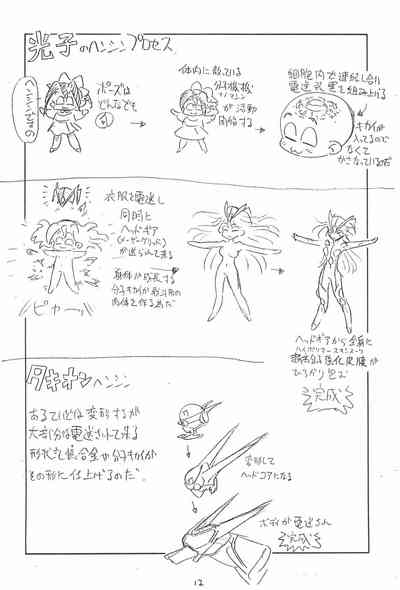 光子のヘンシンプロセス
ポーズは
どんなでも
体内に散っている
分子機械
ナノマシン
が活動
開始する
細胞内で連結し合い
電送装置を組み上げる
キカイが
入ってるので
なくて
かさなっているのだ
衣服を電送し
同時に
ヘッドギア
が送られて来る
身体が成長する
分子キカイが戦斗用の
肉体を作るのだ
ピャー
ヘッドギアから全身に
強化皮膜が
ひろがり包む
完成
タキオンヘンシン
あるていどは変形するが
大部分は電送されて来る
形状記憶合金が分子キカイが
その形に仕上げるのだ。
変形して
ヘッドコアになる
ボディが電送され
完成
12